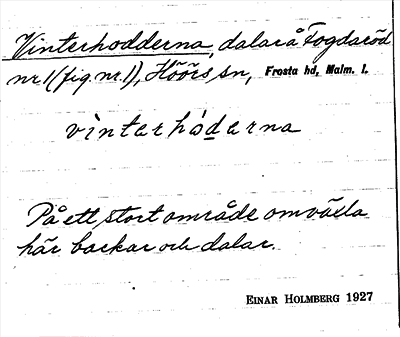 Vinterhodderna, dalar å Fogdaröd
nr 1 (fig. nr. 1), Höörs sn, Frosta hd, Malm. l.
vintarhòdarna
På ett stort område omväxla
här backar och dalar.
EINAR HOLMBERG 1927